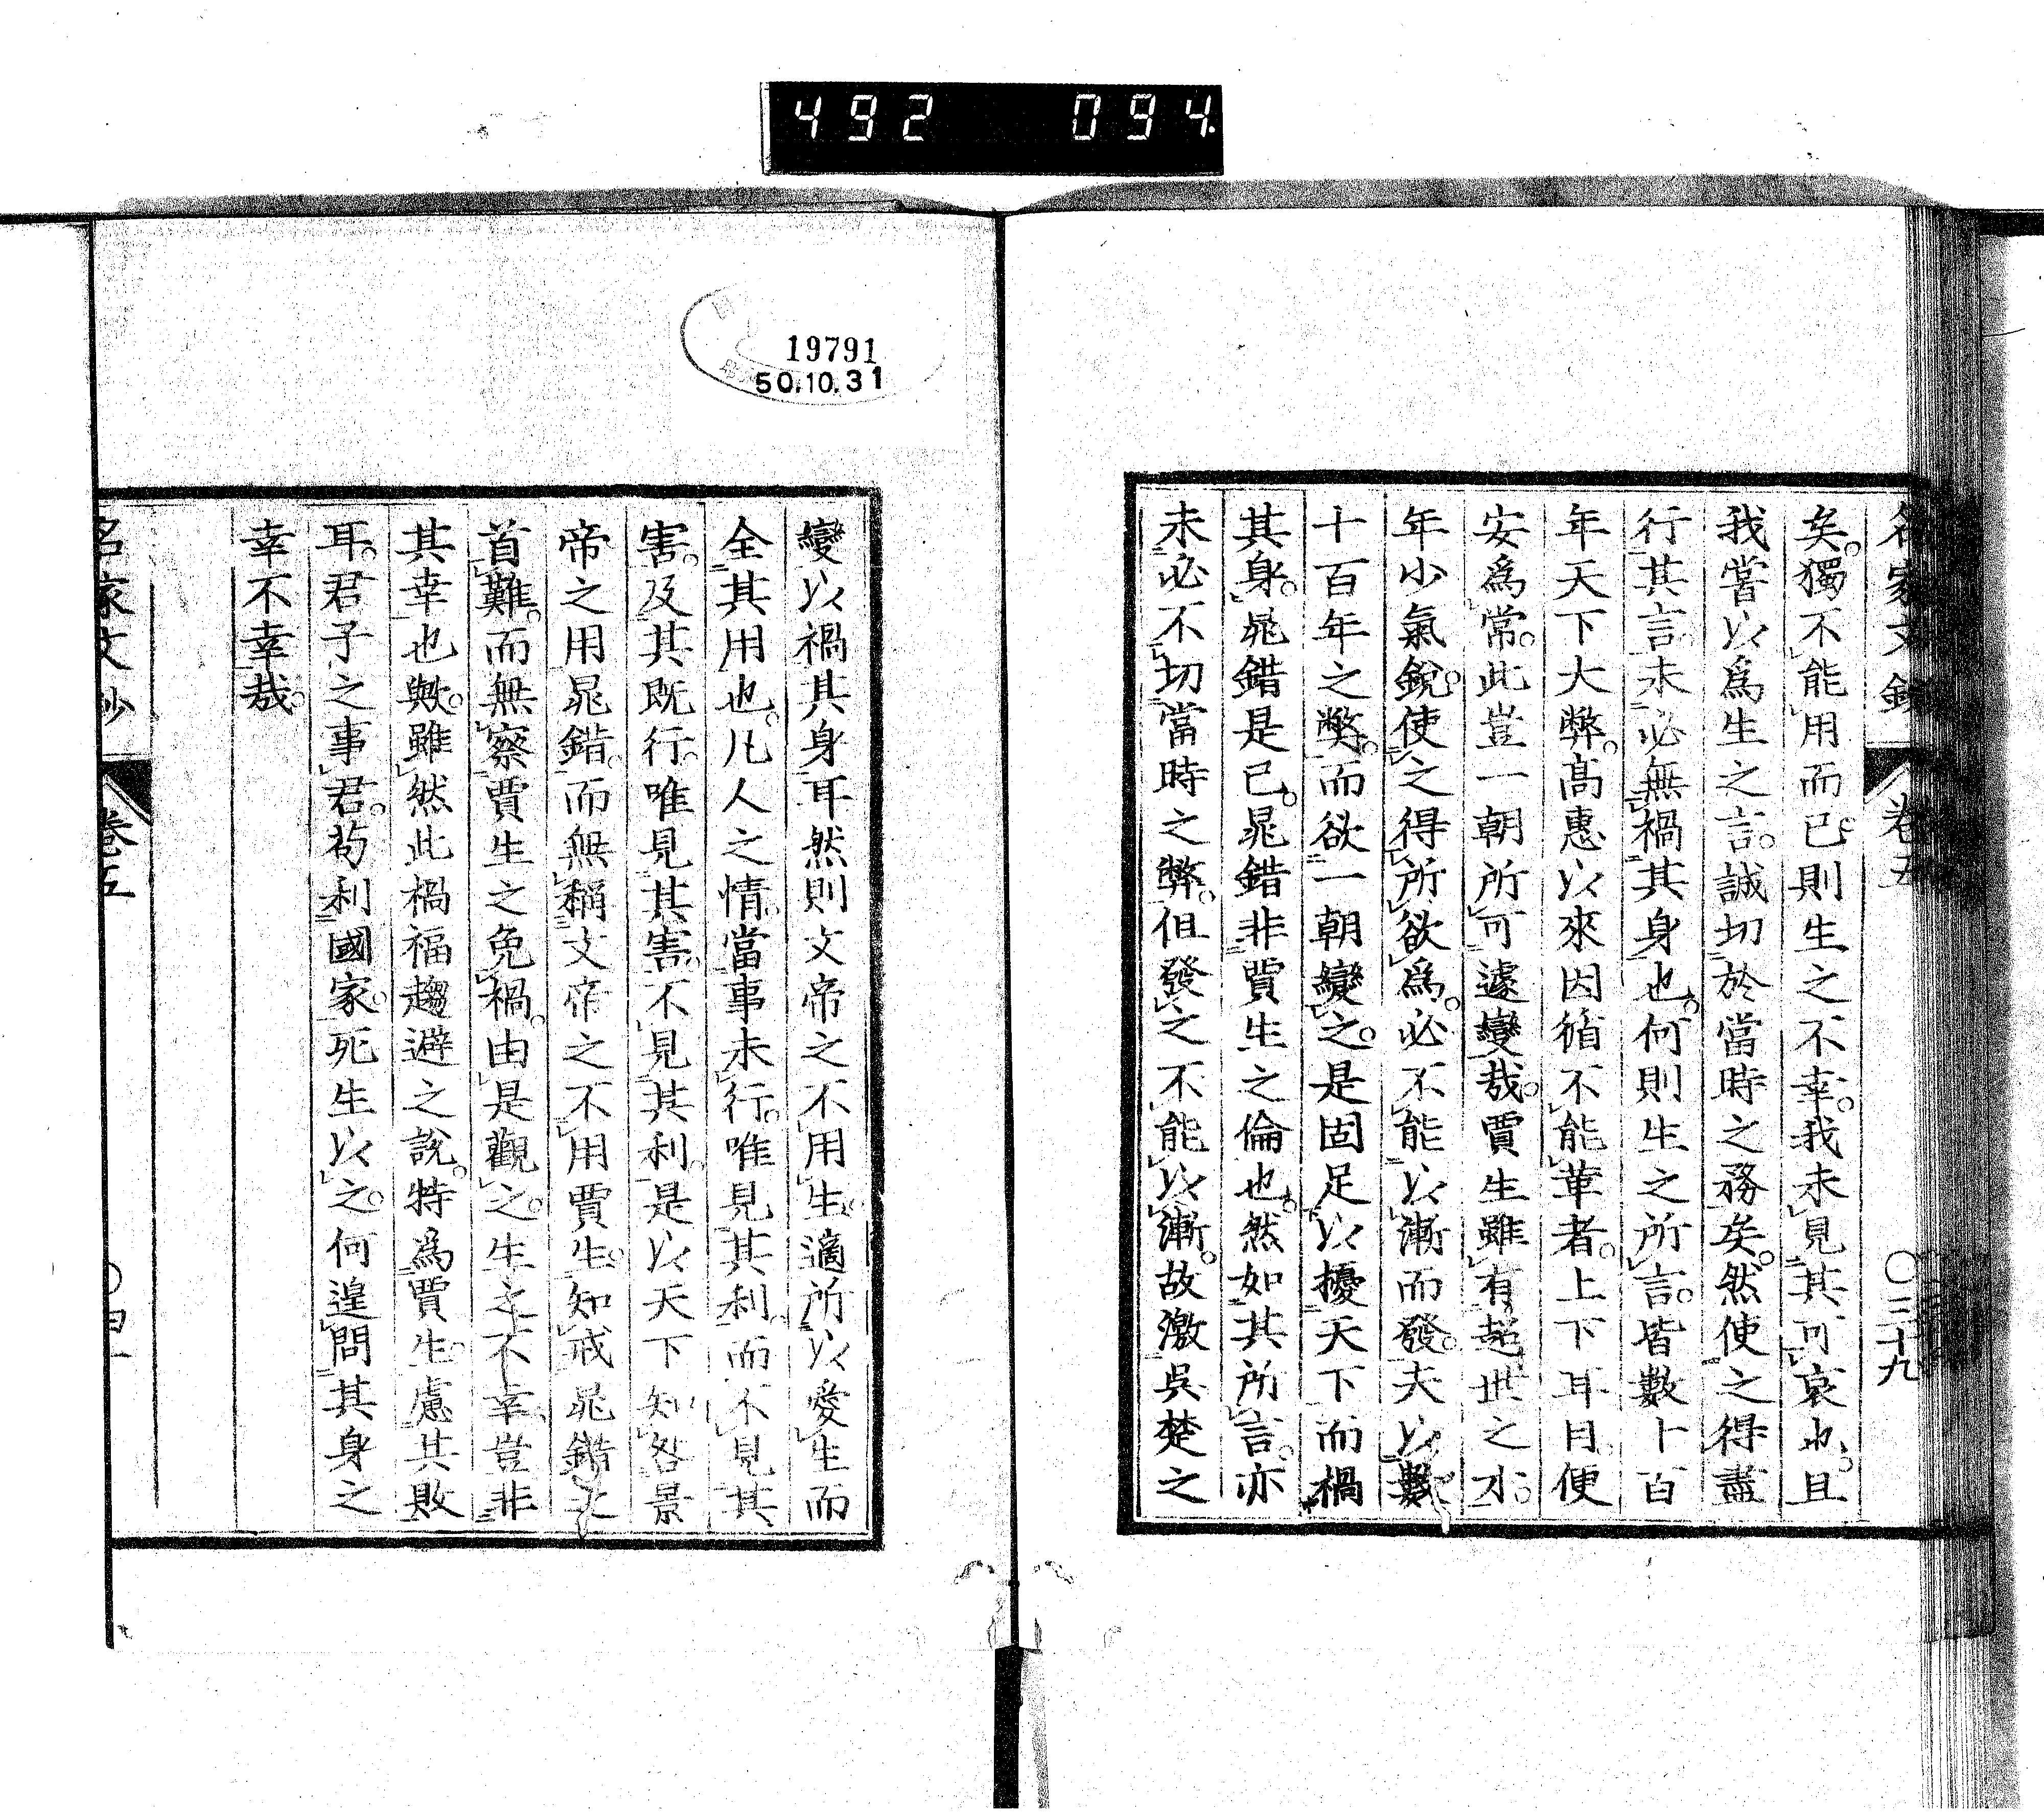 492 094
名家文鈔 卷五 〇三十九
矣。獨不能用而已則生之不幸。我未見其可哀也。且
我嘗以爲生之言。誠切於當時之務矣。然使之得盡
行其言未必無禍其身也。何則生之所言。皆數十百
年天下大弊。高惠以來因循不能革者。上下耳目便
安爲常。此豈一朝所可遽變哉。賈生雖有超世之才。
年少氣銳。使之得所欲爲。必不能以漸而發。夫以數
十百年之弊。而欲一朝變之。是固足以擾天下而禍
其身。晁錯是已。晁錯非賈生之倫也。然如其所言。亦
未必不切當時之弊。但發之不能以漸。故激吳楚之
19791
50.10.31
變以禍其身耳然則文帝之不用生。適所以愛生而
全其用也。凡人之情。當事未行。唯見其利。而不見其
害。及其既行。唯見其害。不見其利。是以天下知咎景
帝之用晁錯。而無稱文帝之不用賈生。知戒晁錯之
首難。而無察賈生之免禍。由是觀之。生之不幸豈非
其幸也歟。雖然此禍福趨避之說。特爲賈生慮其敗
耳。君子之事君。苟利國家。死生以之。何遑問其身之
幸不幸哉。
名家文鈔 卷五 〇四十